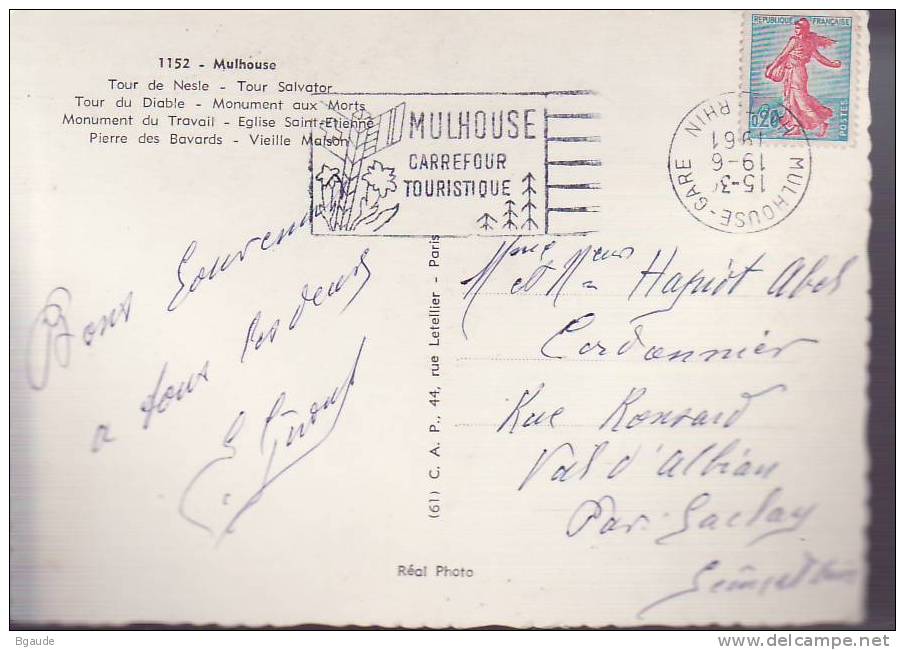 1152 - Mulhouse
Tour de Nesle - Tour Salvator
Tour du Diable - Monument aux Morts
Monument du Travail - Eglise Saint-Etienne
Pierre des Bavards - Vieille Maison
MULHOUSE
CARREFOUR
TOURISTIQUE
REPUBLIQUE FRANÇAISE
0,20
POSTES
MULHOUSE-GARE
RHIN
15-3
19-6
1961
Bons Souvenirs
a tous les deux
(61) C. A. P., 44, rue Letellier - Paris
Mme et Meur Hapiot Abel
Cordonnier
Rue Ronsard
Val d'Albian
Par Saclay
Seine et Oise
Réal Photo
Bgaude
www.delcampe.net